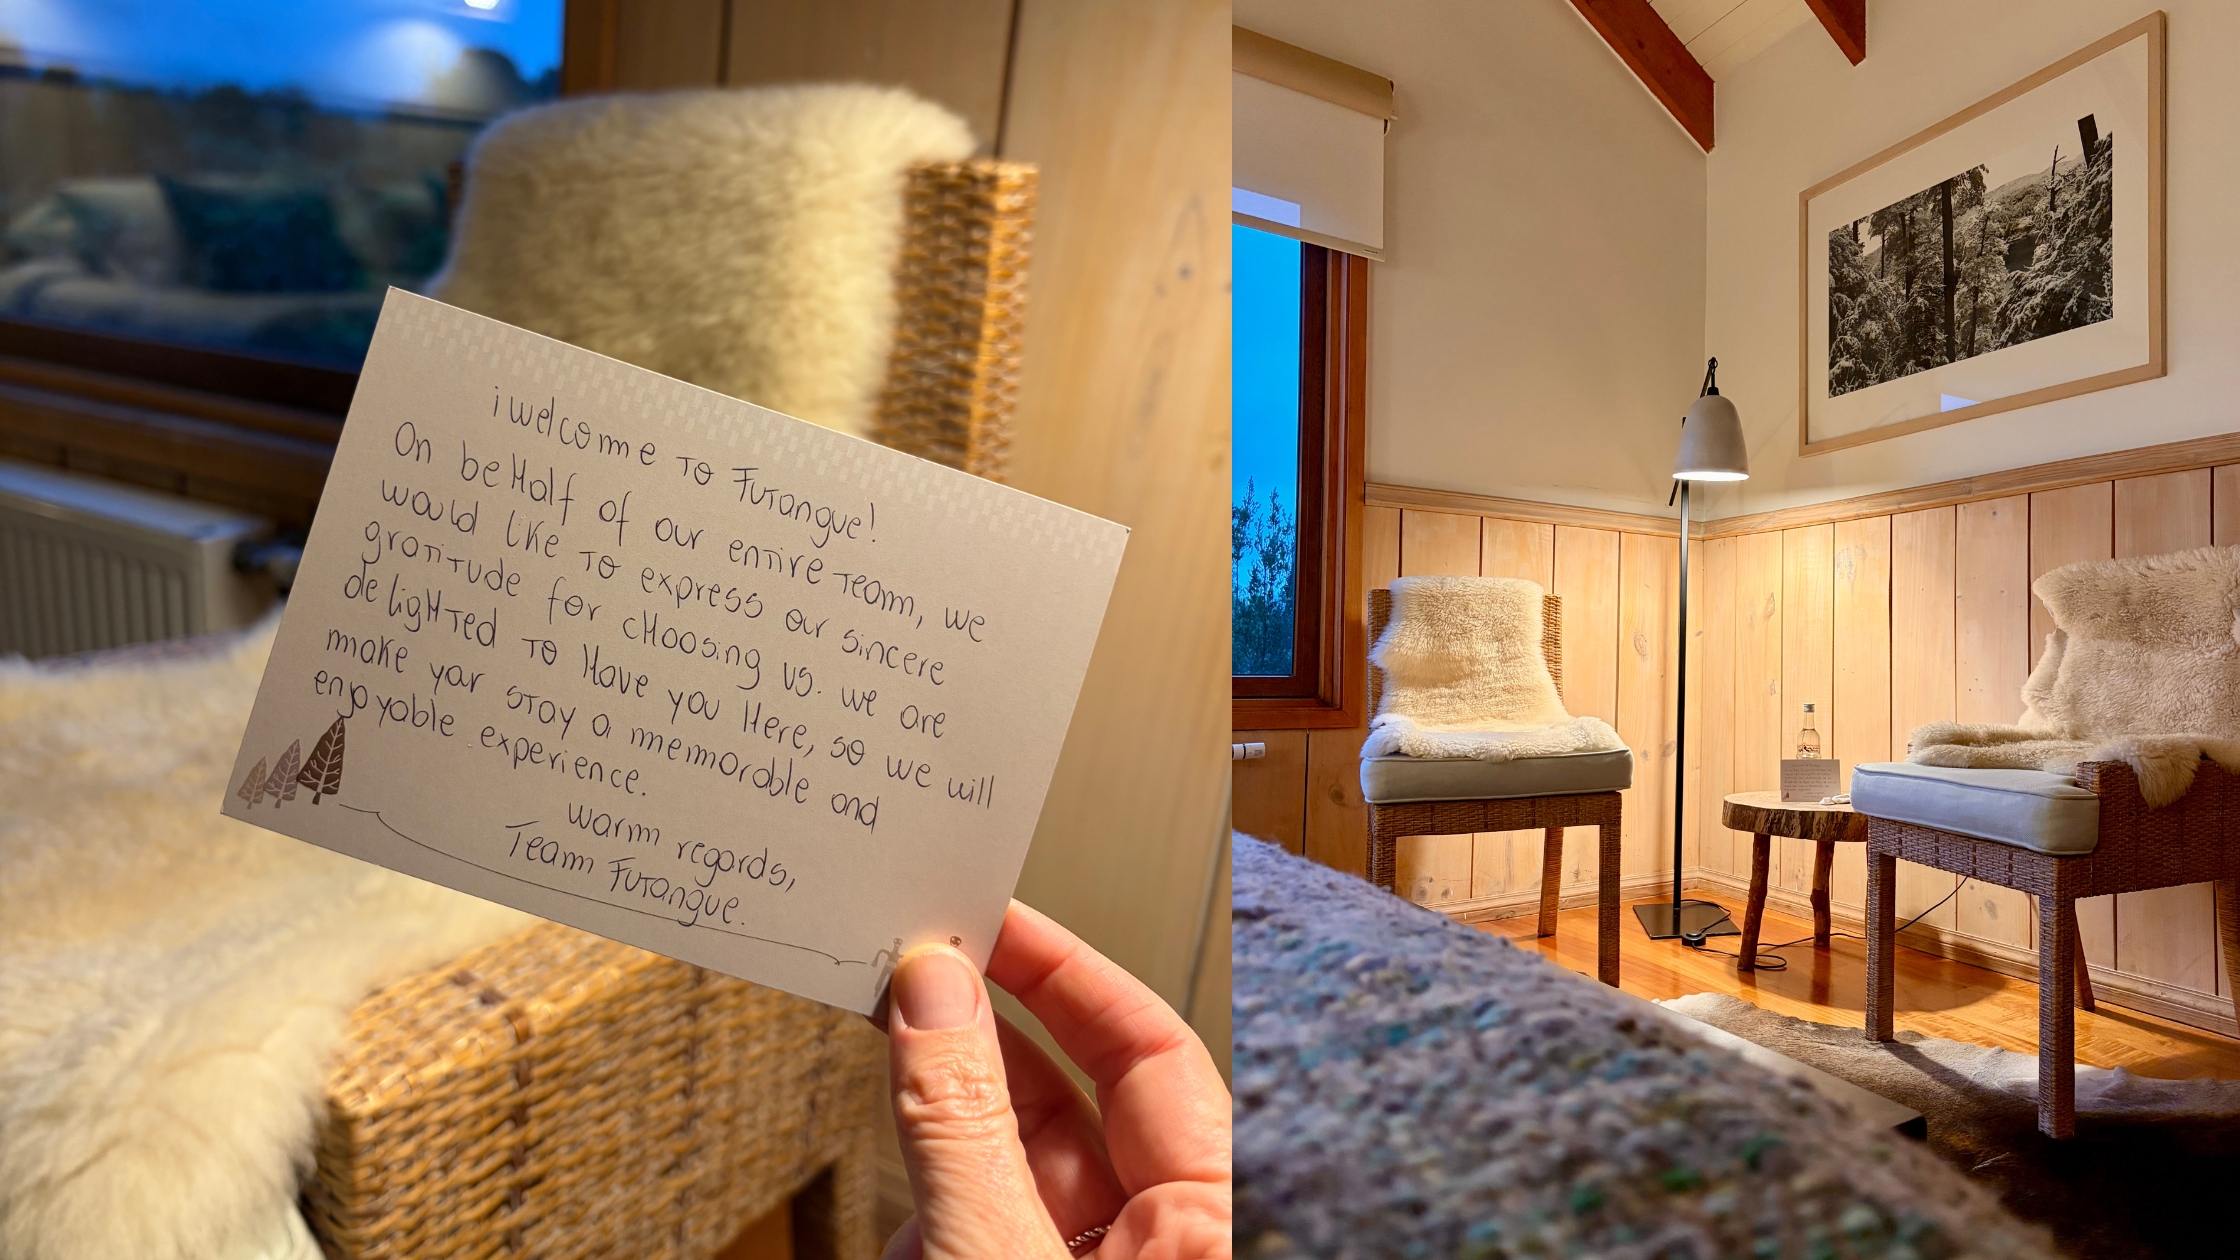 ¡welcome to Futangue!
On behalf of our entire team, we
would like to express our sincere
gratitude for choosing us. we are
delighted to have you here, so we will
make your stay a memorable and
enjoyable experience.
warm regards,
Team Futangue.